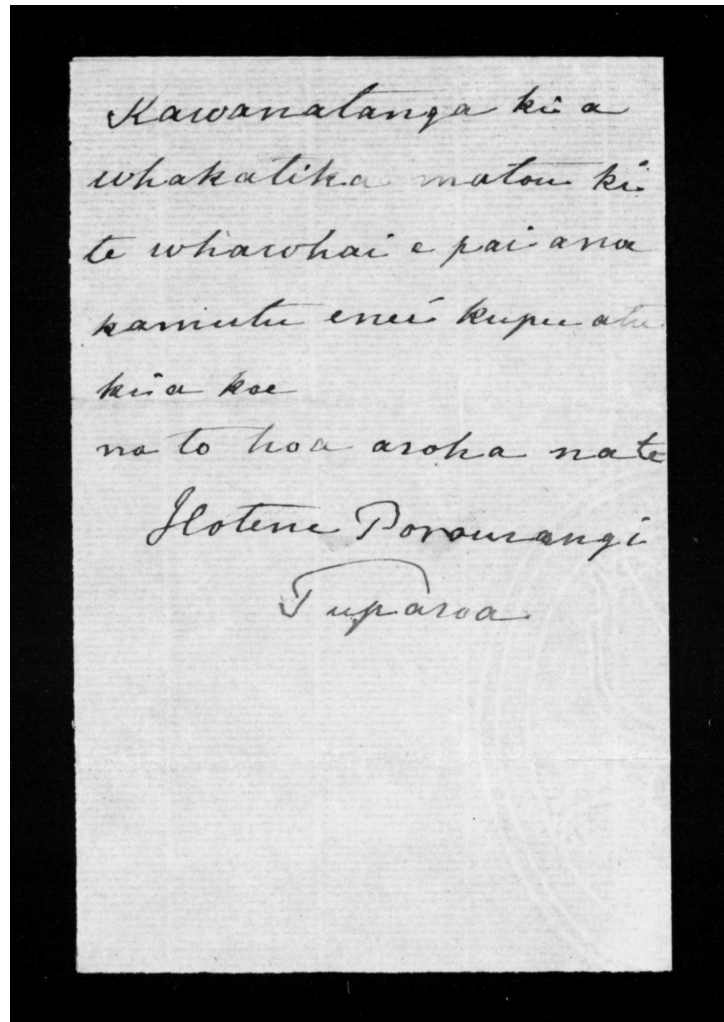 Kawanatanga kia
whakatika matou ki
te whawhai e pai ana
kamutu enei kupu atu
kia koe
na to hoa aroha nate
Hotene Porourangi
Tuparoa